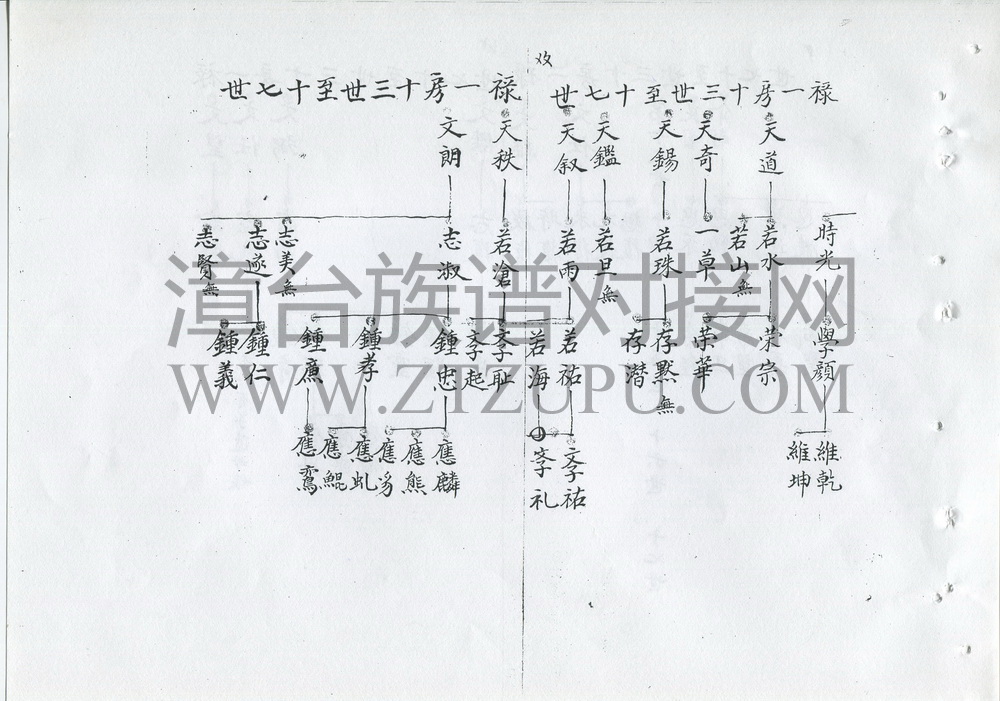 攻
禄一房十三世至十七世
天道
天奇
天錫
天鑑
天叙
時光
若水
若山無
一草
若珠
若旦無
若雨
學顏
荣宗
荣華
存黙無
存潜
若祐
若海
維乾
維坤
孝祐
孝礼
禄一房十三世至十七世
天秩
文朗
若滄
志淑
志美無
志遂
志賢無
孝耻
孝起
鍾忠
鍾孝
鍾廉
鍾仁
鍾義
應麟
應熊
應豸
應虬
應鯤
應鸞
漳台族谱对接网
WWW.ZTZUPU.COM